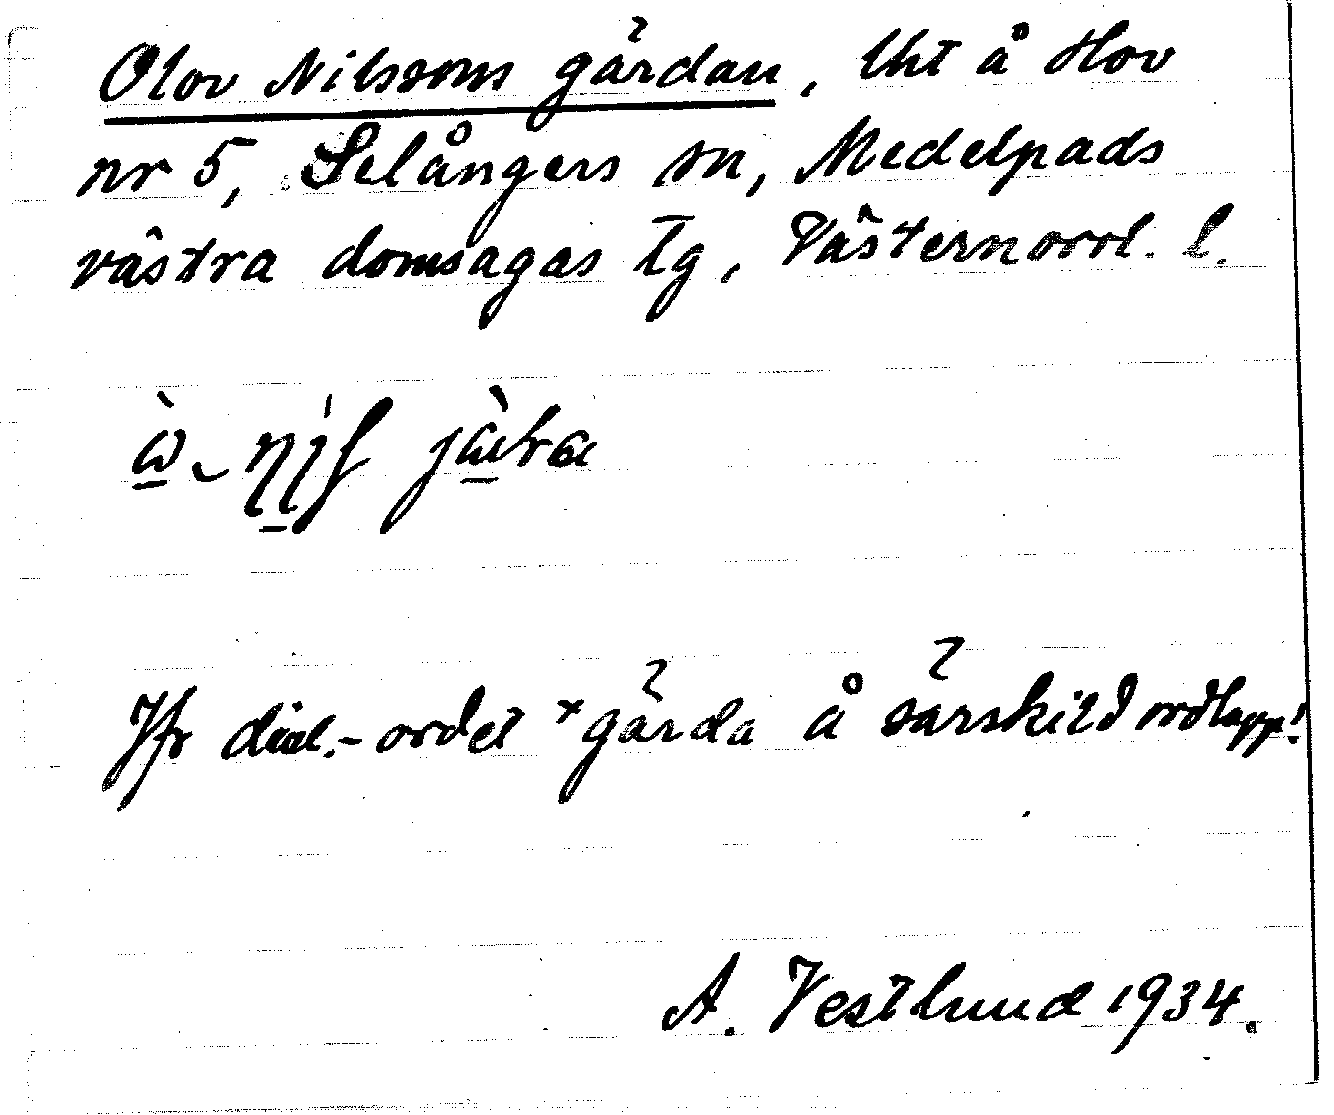 Olov Nilssons gärdan, lht å Hov
nr 5, Selångers sn, Medelpads
västra domsagas tg, Västernorrl. l.
Jfr dial.-ordet *gärda å särskild ordlapp!
A. Vestlund 1934.